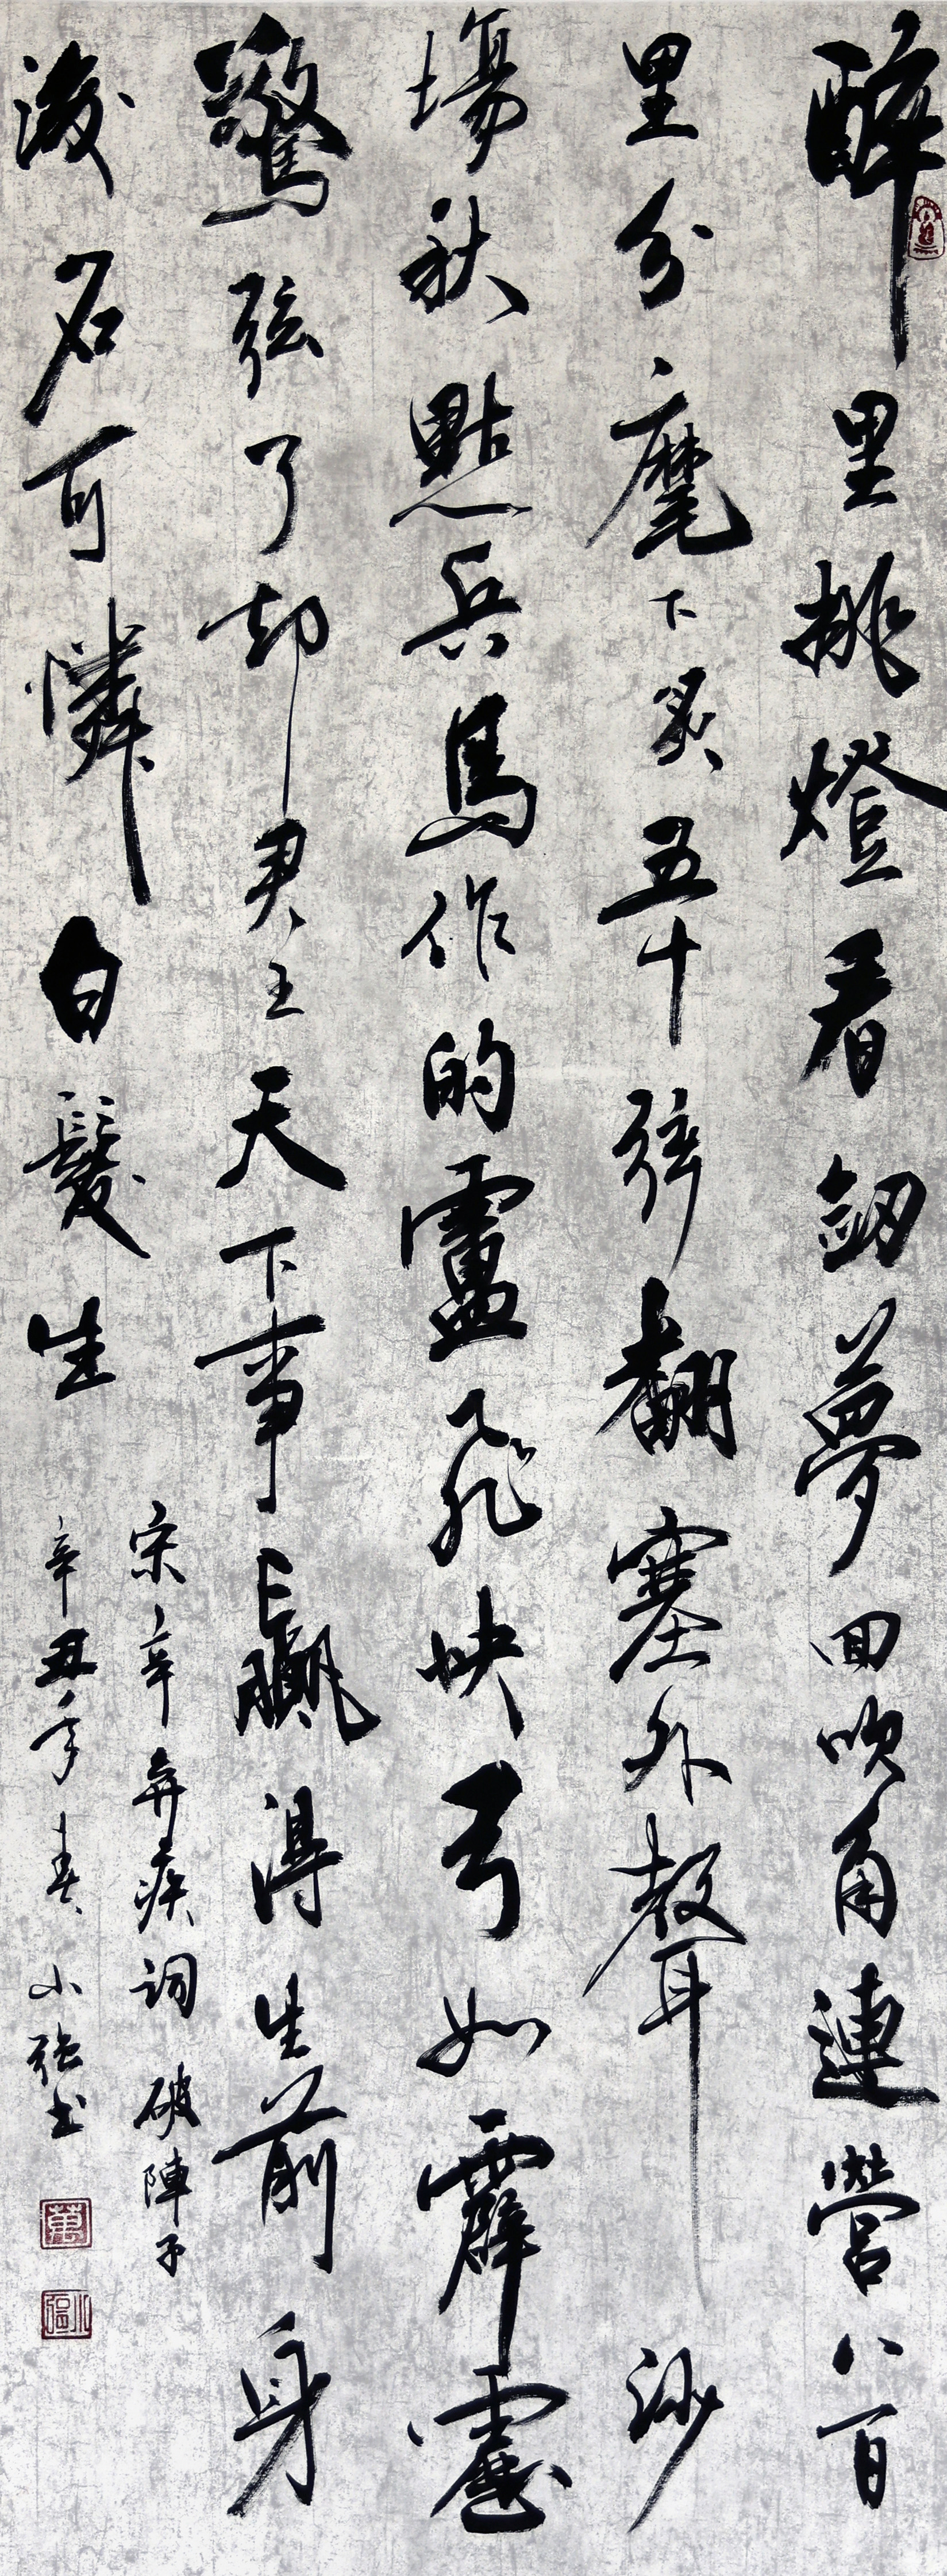 醉里挑燈看劒夢回吹角連營八百
里分麾下炙五十弦翻塞外聲沙
場秋點兵馬作的盧飛快弓如霹靂
驚弦了却君王天下事贏得生前身
後名可憐白髮生
宋辛弃疾詞 破陣子
辛丑年春 小強書
萬